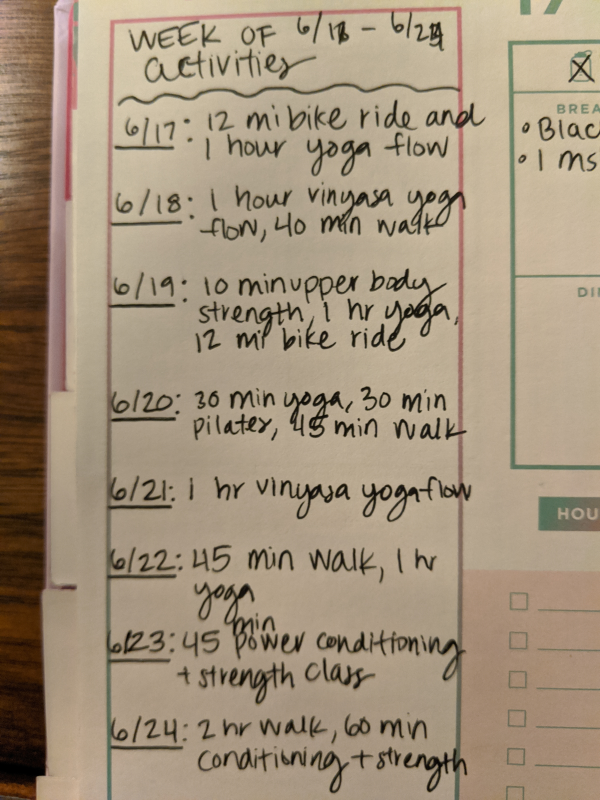 WEEK OF 6/18 - 6/24
activities
6/17: 12 mi bike ride and
1 hour yoga flow
6/18: 1 hour vinyasa yoga
flow, 40 min walk
6/19: 10 min upper body
strength, 1 hr yoga,
12 mi bike ride
6/20: 30 min yoga, 30 min
pilates, 45 min walk
6/21: 1 hr vinyasa yoga flow
6/22: 45 min walk, 1 hr
yoga
min
6/23: 45 power conditioning
+ strength class
6/24: 2 hr walk, 60 min
conditioning + strength
17
BREA
• Blac
• 1 ms
DI
HOU